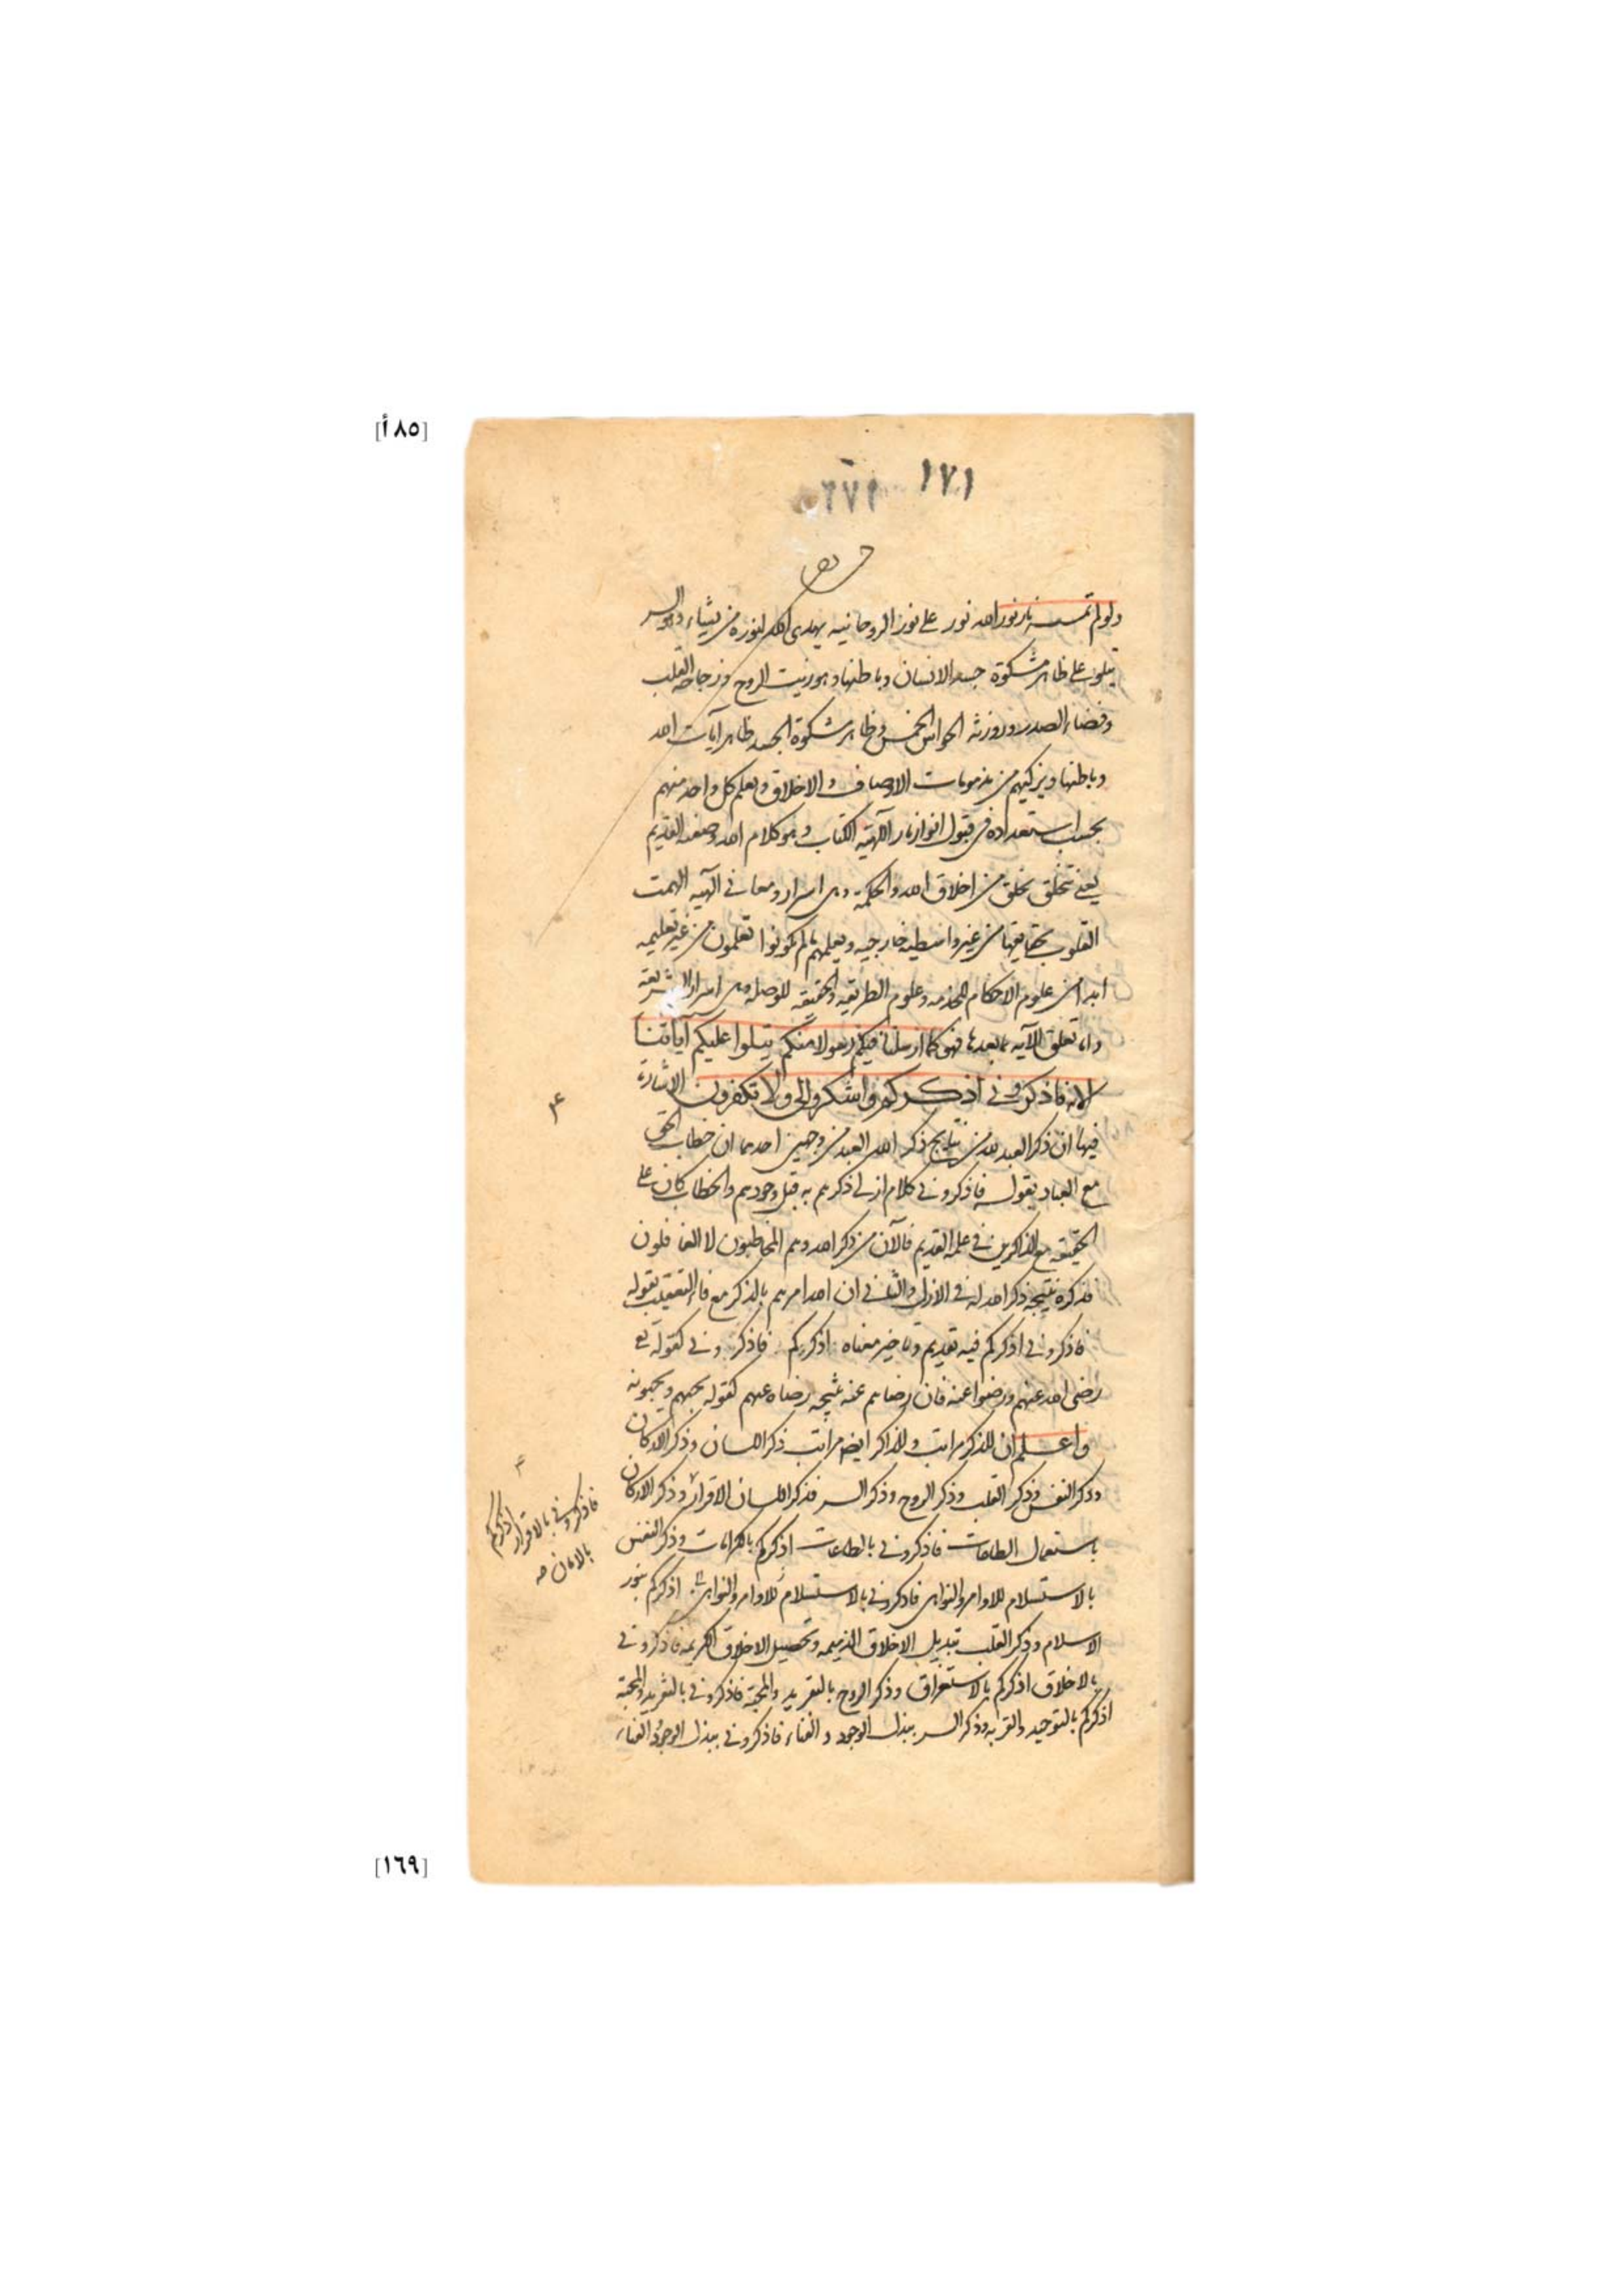 [٨٥أ]
١٧١
ولو لم تمسسه نار نور الله نور على نور الروحانيه يهدى الله لنوره من يشاء وهو السر
يتلو على ظاهر مشكوة جسد الانسان وباطنها وهو زيت الروح وزجاجه القلب
وفضاء الصدر وروزنه الحواس الخمس وظاهر مشكوة الجسد ظاهر آيات الله
وباطنها ويزكيهم من مذمومات الاوصاف والاخلاق ويعلم كل واحد منهم
بحسب استعداده فى قبول انوار نار الالهيه الكتاب وهو كلام الله وصفته القديم
يعنى تتخلق بخلق من اخلاق الله والحكمة وهى اسرار ومعانى الهيه الهمت
القلوب بحقايقها من غير واسطه خارجيه ويعلمهم ما لم تكونوا تعلمون من غير تعليمه
ابدا من علوم الاحكام وعلوم الطريقه والحقيقه للوصله وهى اسرار الشريعه
واما تعلق الآيه بما بعدها فهو كما ارسلنا فيكم رسولا منكم يتلوا عليكم اياتنا
الايه فاذكرونى اذكركم واشكروا لى ولا تكفرون الاشارة
فيها ان ذكر العبد لله من نتايج ذكر الله العبد من وجهين احدهما ان خطاب الحق
مع العباد بقوله فاذكرونى كلام ازلى ذكرهم به قبل وجودهم والخطاب كان على
الحقيقه مع الذاكرين فى علمه القديم فالآن من ذكر الله وهم المخاطبون لا الغافلون
فذكره نتيجه ذكر الله له فى الازل والثانى ان الله امرهم بالذكر مع فاء التعقيب بقوله
فاذكرونى اذكركم فيه تقديم وتاخير معناه اذكركم فاذكرونى كقوله تع
رضى الله عنهم ورضوا عنه فان رضاهم عنه نتيجه رضاه عنهم كقوله يحبهم ويحبونه
واعلم ان للذكر مراتب وللذاكر ايض مراتب ذكر اللسان وذكر الاركان
وذكر النفس وذكر القلب وذكر الروح وذكر السر فذكر اللسان الاقرار وذكر الاركان
باستعمال الطاعات فاذكرونى بالطاعات اذكركم بالكرامات وذكر النفس
بالاستسلام للاوامر والنواهى فاذكرونى بالاستسلام للاوامر والنواهى اذكركم بنور
الاسلام وذكر القلب تبديل الاخلاق الذميمه وتحصيل الاخلاق الكريمه فاذكرونى
بالاخلاق اذكركم بالاستغراق وذكر الروح بالتفريد والمحبة فاذكرونى بالتفريد والمحبة
اذكركم بالتوحيد والقربه وذكر السر ببذل الوجود والفناء فاذكرونى ببذل الوجود والفناء
فاذكرونى بالاقرار اذكركم
بالامان صه
[١٦٩]